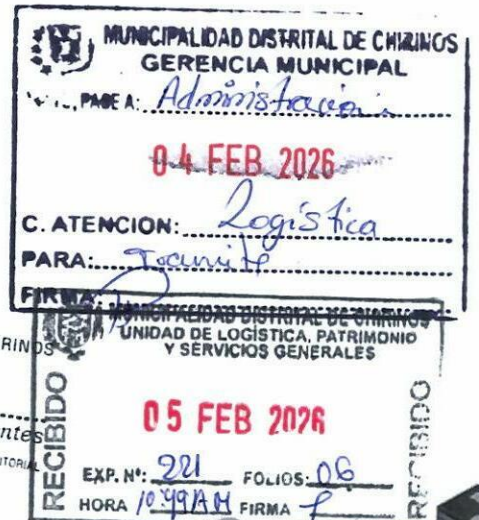 MUNICIPALIDAD DISTRITAL DE CHIRINOS
GERENCIA MUNICIPAL
PASE A: Administración
04 FEB 2026
C. ATENCION: Logística
PARA: Tramite
FIRMA:
MUNICIPALIDAD DISTRITAL DE CHIRINOS
UNIDAD DE LOGÍSTICA, PATRIMONIO
Y SERVICIOS GENERALES
RINOS
RECIBIDO
05 FEB 2026
RECIBIDO
ntes
ITORIAL
EXP. Nº: 221 FOLIOS: 06
HORA 10:49AM FIRMA